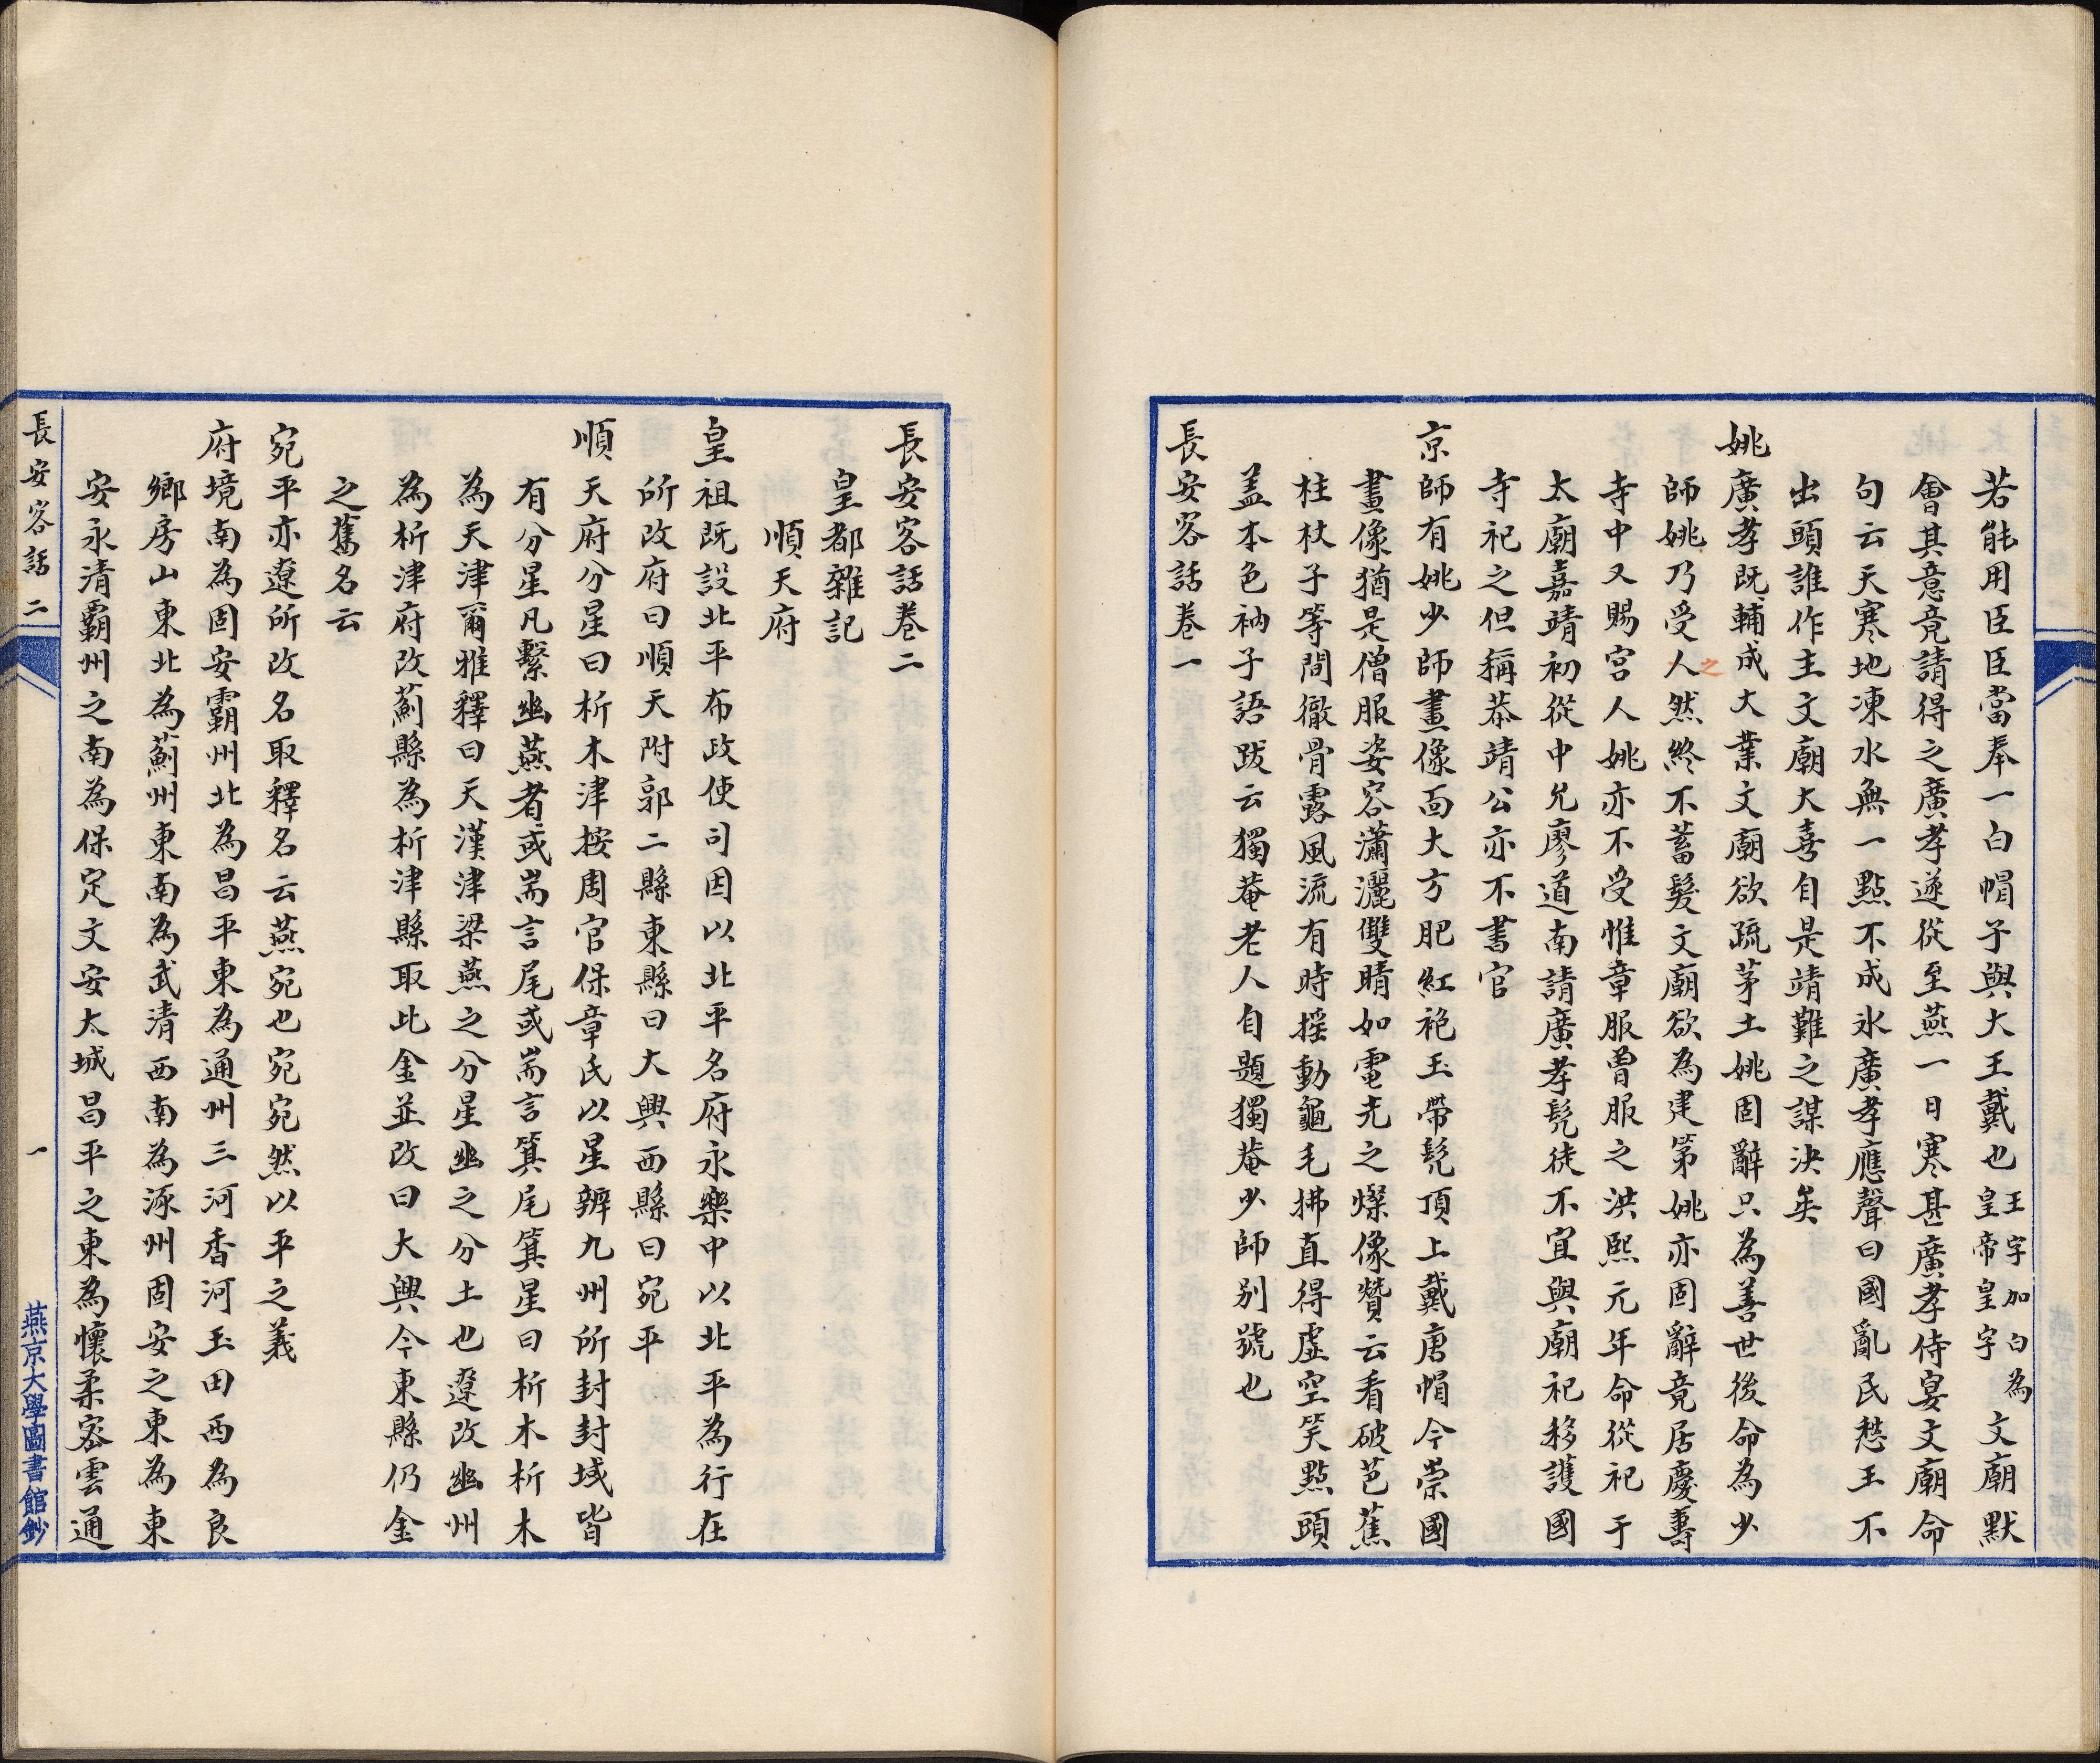 若能用臣臣當奉一白帽子與大王戴也王字加白為皇帝皇字文廟默
會其意竟請得之廣孝遂從至燕一日寒甚廣孝侍宴文廟命
句云天寒地凍水無一點不成氷廣孝應聲曰國亂民愁王不
出頭誰作主文廟大喜自是靖難之謀決矣
姚廣孝既輔成大業文廟欲疏茅土姚固辭只為善世後命為少
師姚乃受之人然終不蓄髮文廟欲為建第姚亦固辭竟居慶壽
寺中又賜宮人姚亦不受惟章服曾服之洪熙元年命從祀于
太廟嘉靖初從中允廖道南請廣孝髠徒不宜與廟祀移護國
寺祀之但稱恭靖公亦不書官
京師有姚少師畫像面大方肥紅袍玉帶髠頂上戴唐帽今崇國
畫像猶是僧服姿容瀟灑雙睛如電光之燦像贊云看破芭蕉
柱杖子等閒徹骨露風流有時搖動龜毛拂直得虛空笑點頭
蓋本色衲子語跋云獨菴老人自題獨菴少師別號也
長安客話卷一
長安客話卷二
皇都雜記
順天府
皇祖既設北平布政使司因以北平名府永樂中以北平為行在
所改府曰順天附郭二縣東縣曰大興西縣曰宛平
順天府分星曰析木津按周官保章氏以星辨九州所封封域皆
有分星凡繫幽燕者或耑言尾或耑言箕尾箕星曰析木析木
為天津爾雅釋曰天漢津梁燕之分星幽之分土也遼改幽州
為析津府改薊縣為析津縣取此金並改曰大興今東縣仍金
之舊名云
宛平亦遼所改名取釋名云燕宛也宛宛然以平之義
府境南為固安霸州北為昌平東為通州三河香河玉田西為良
鄉房山東北為薊州東南為武清西南為涿州固安之東為東
安永清霸州之南為保定文安大城昌平之東為懷柔密雲通
長安客話 二
一
燕京大學圖書館鈔